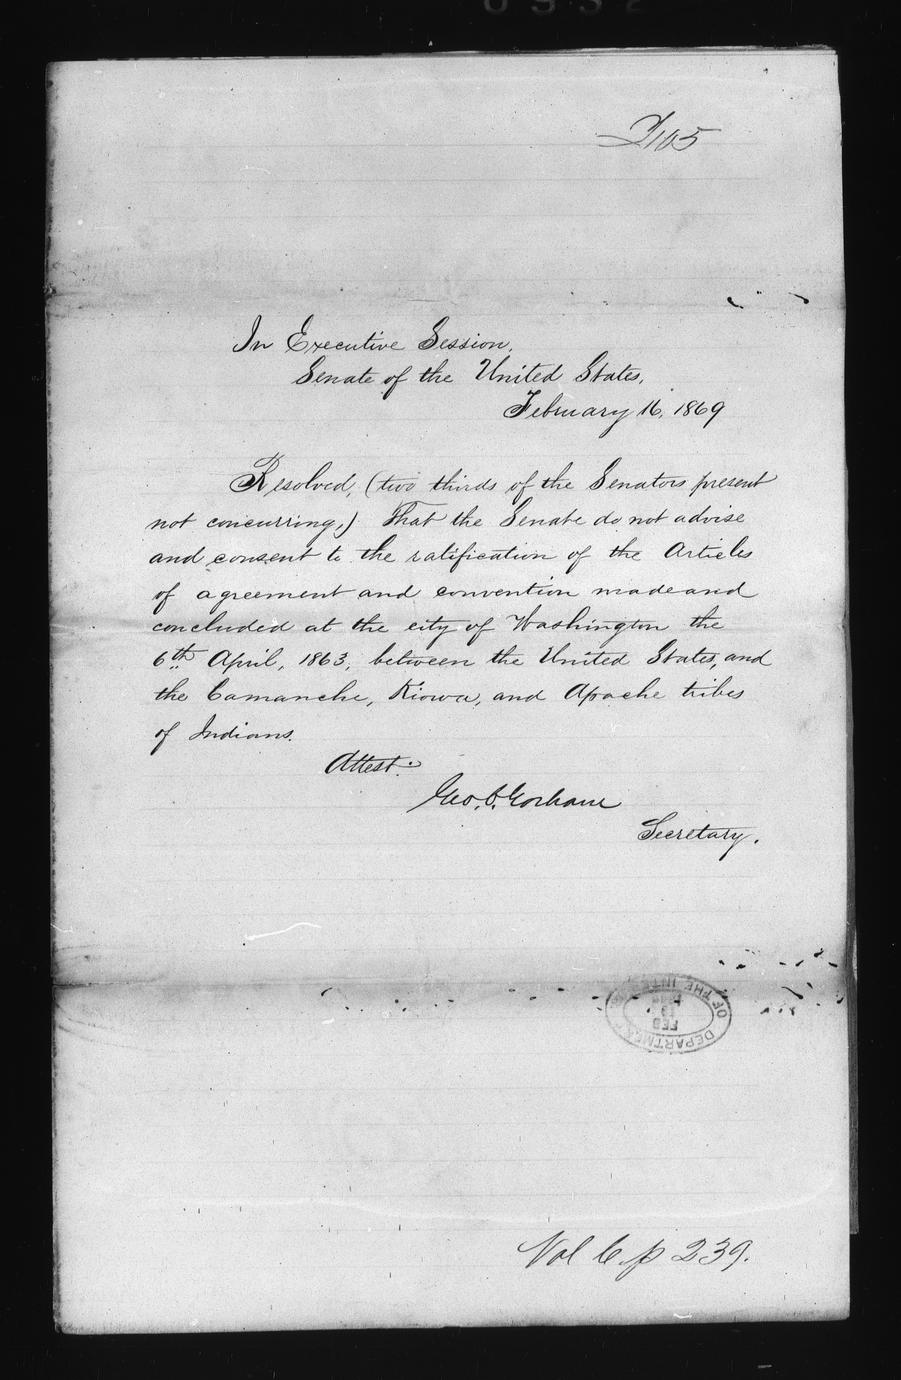 I/105
In Executive Session,
Senate of the United States,
February 16, 1869
Resolved, (two thirds of the Senators present
not concurring,) That the Senate do not advise
and consent to the ratification of the Articles
of agreement and convention made and
concluded at the city of Washington the
6th April, 1863, between the United States, and
the Camanche, Kiowa, and Apache tribes
of Indians.
Attest:
Geo. C. Gorham
Secretary.
DEPARTMENT OF THE INTERIOR
FEB
Vol 6. p 239.